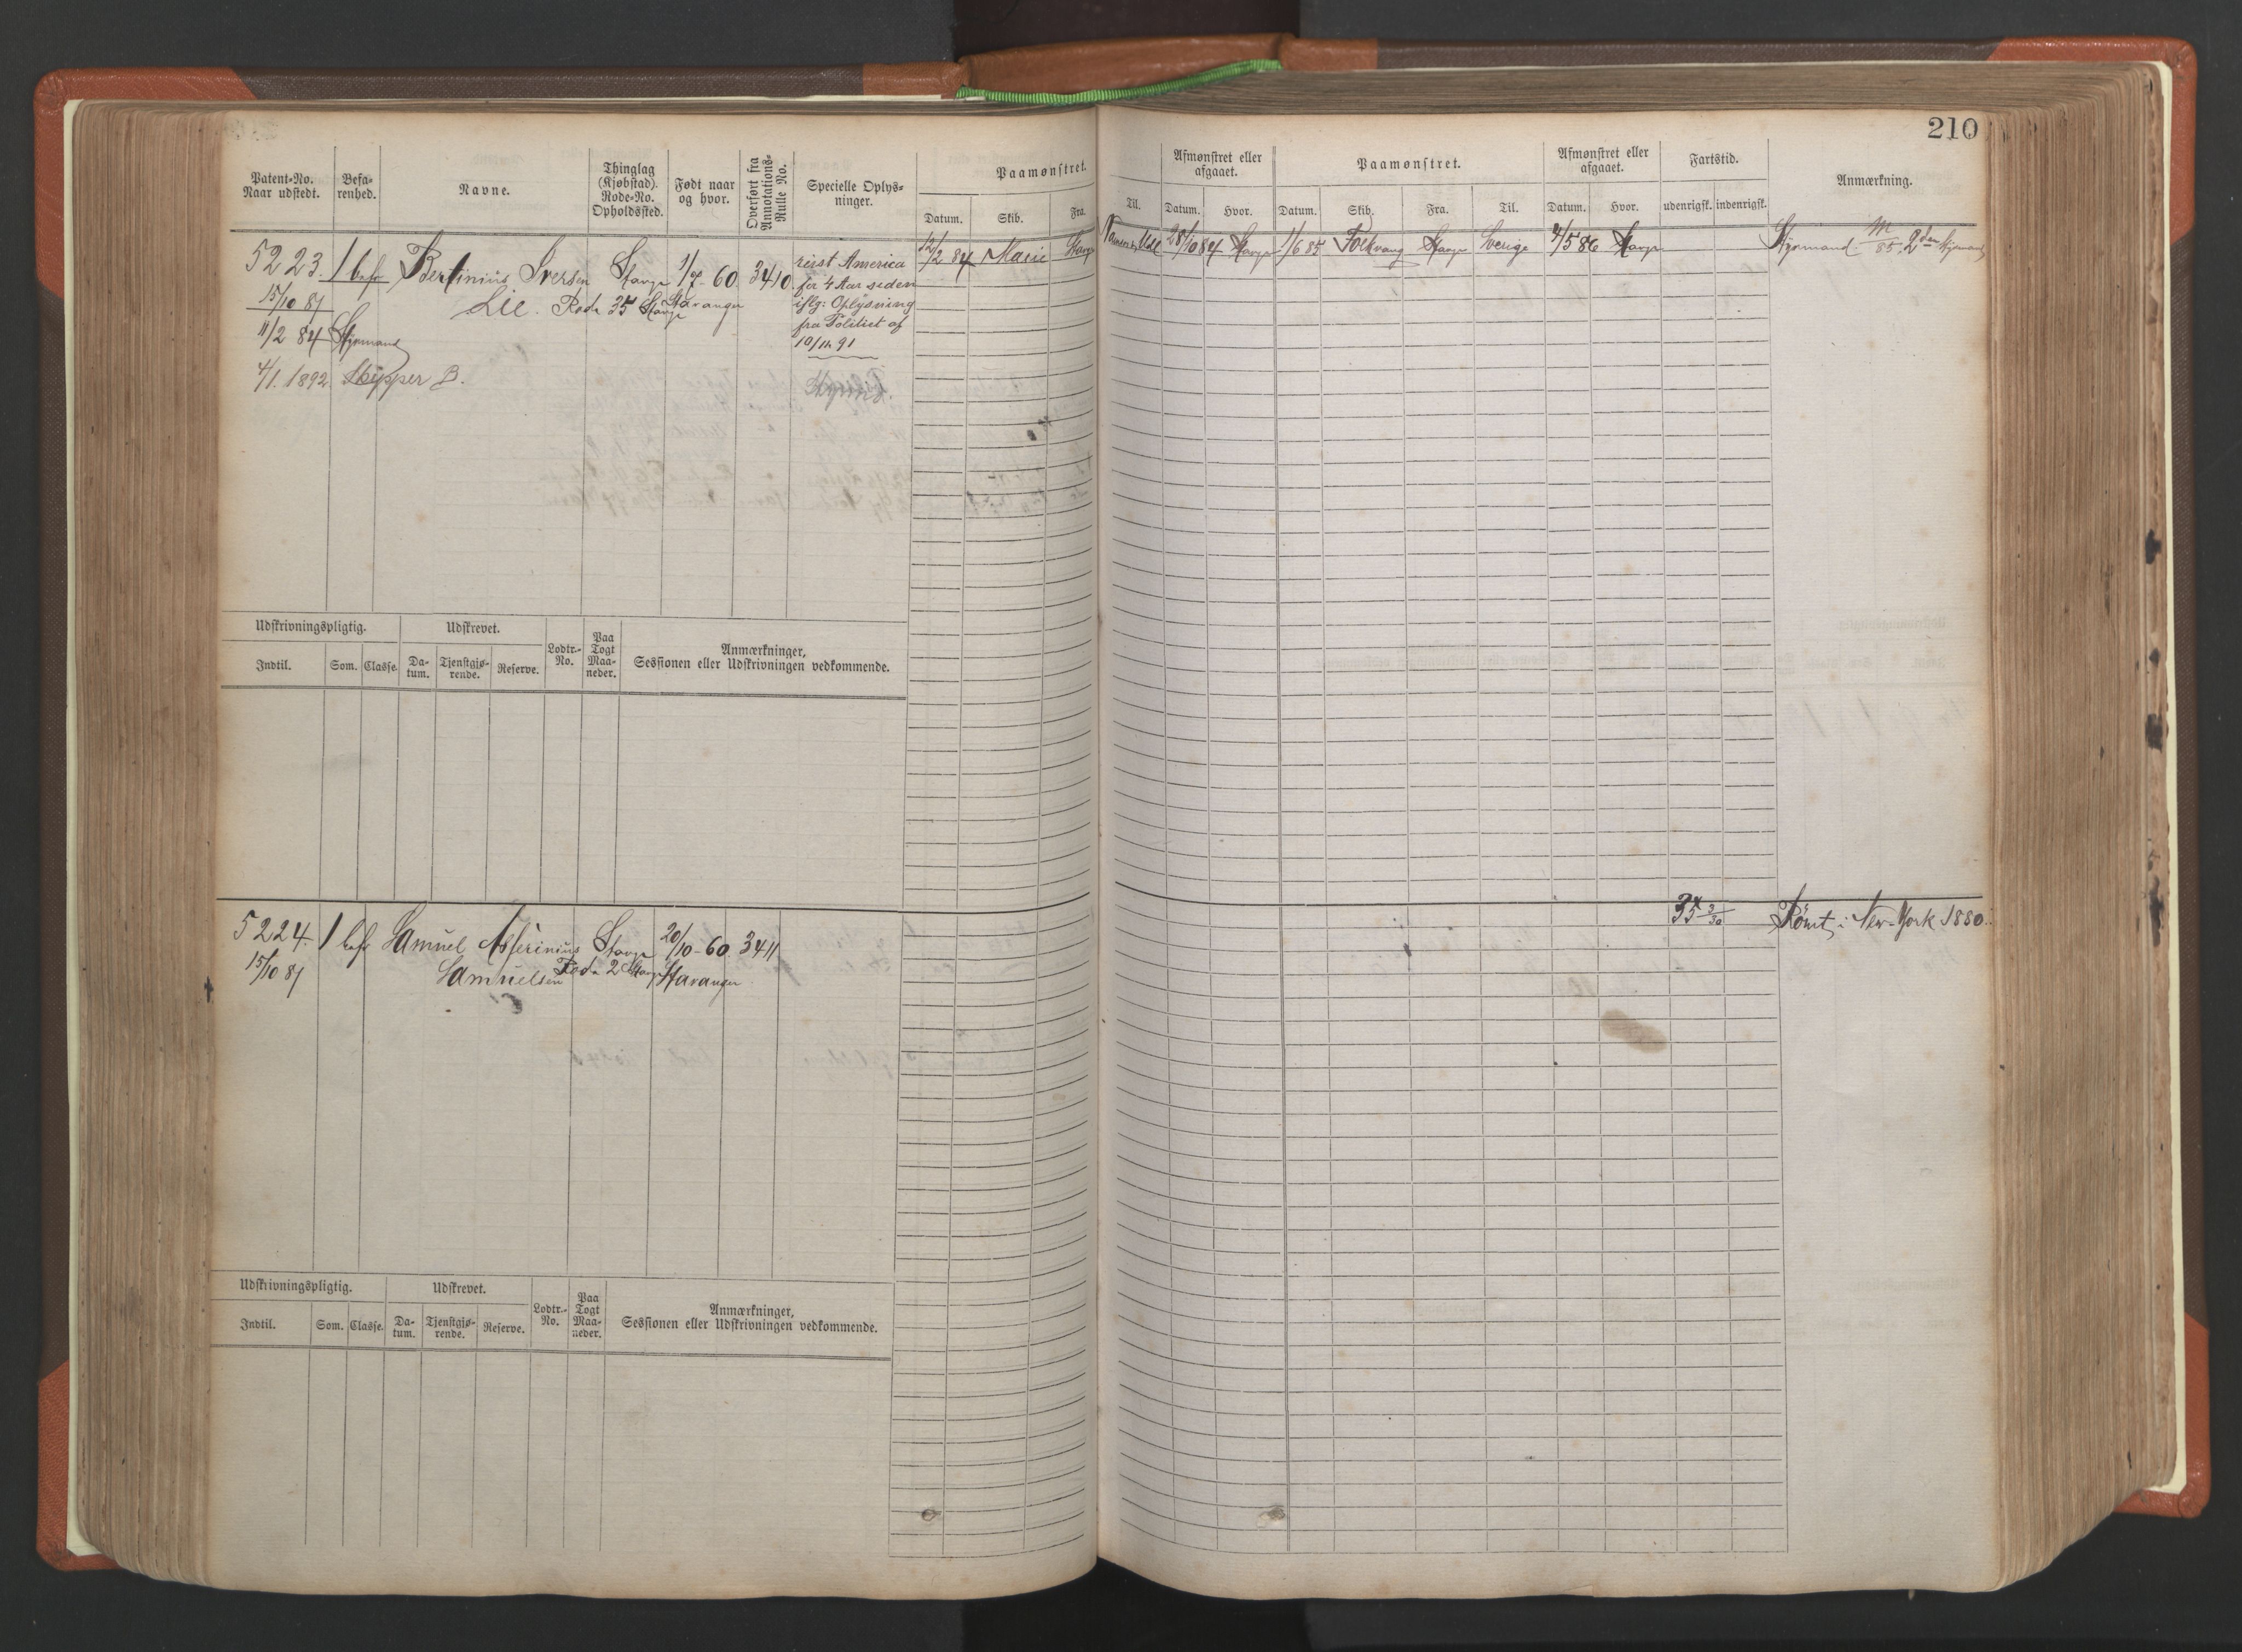 210
Patent-No. Naar udstedt. Befarenhed. Navne. Thinglag (Kjøbstad). Rode-No. Opholdssted. Født naar og hvor. Overført fra Annotations-Rulle No. Specielle Oplysninger. Paamønstret. Datum. Skib. Fra.
Til. Afmønstret eller afgaaet. Datum. Hvor. Paamønstret. Datum. Skib. Fra. Til. Afmønstret eller afgaaet. Datum. Hvor. Fartstid. udenrigsk. indenrigsk. Anmærkning.
5223. 1 bef Bertinius Iversen Stavgr 1/7-60. 3410. reist America 12/2 84 Marie Stavgr
Udl 28/10 84 Stavgr 1/6 85 Folkvang Stavgr Sverige 4/5 86 Stavgr Styrmand M/85. 2den Styrmand
15/10 81 Lie. Rode 35 Stavgr Stavanger
for 4 Aar siden
iflg: Oplysning
fra Politiet af
10/11 91
11/2 84 Styrmand
4/1. 1892. Skipper B.
Udskrivningspligtig. Udskrevet. Lodtr.-No. Paa Togt Maaneder. Anmærkninger, Sessionen eller Udskrivningen vedkommende.
Indtil. Som. Classe. Datum. Tjenstgjørende. Reserve.
5224. 1 bef Samuel Asserinius Stavgr 20/10-60. 3411
35 3/30 Rømt i New-York 1880.
15/10 81 Samuelsen Rode 2 Stavgr Stavanger
Udskrivningspligtig. Udskrevet. Lodtr.-No. Paa Togt Maaneder. Anmærkninger, Sessionen eller Udskrivningen vedkommende.
Indtil. Som. Classe. Datum. Tjenstgjørende. Reserve.